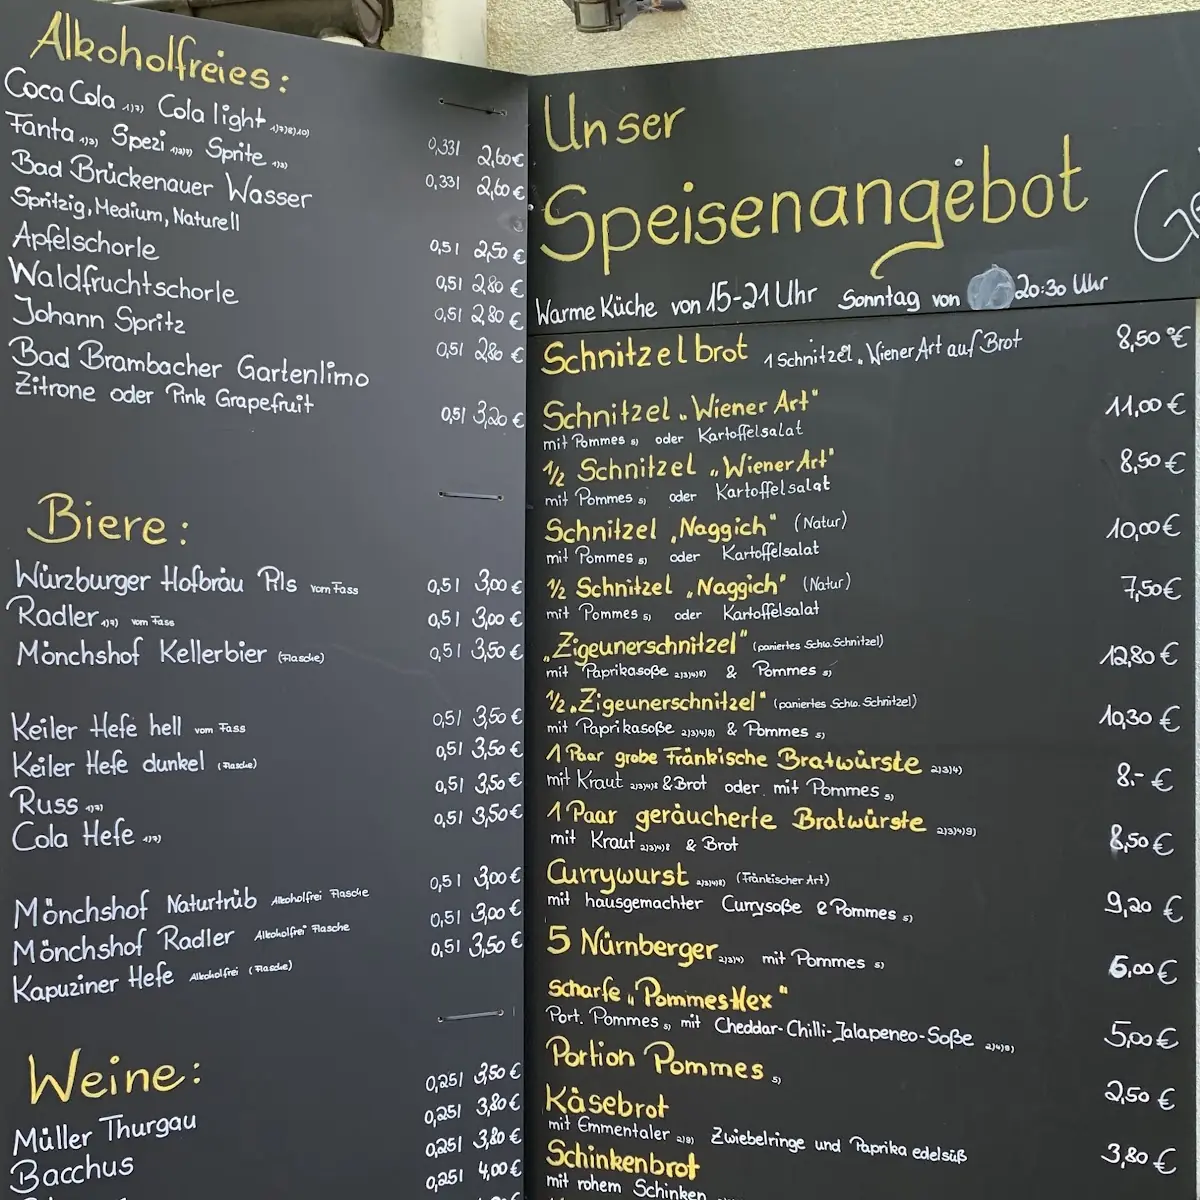 Alkoholfreies:
Coca Cola 1)7) Cola light 1)7)8)10)
0,33l 2,60€
Fanta 1)3) Spezi 1)3)7) Sprite 1)3)
0,33l 2,60€
Bad Brückenauer Wasser
Spritzig, Medium, Naturell
0,5l 2,50€
Apfelschorle
0,5l 2,80€
Waldfruchtschorle
0,5l 2,80€
Johann Spritz
0,5l 2,80€
Bad Brambacher Gartenlimo
Zitrone oder Pink Grapefruit
0,5l 3,20€
Biere:
Würzburger Hofbräu Pils vom Fass 0,5l 3,00€
Radler vom Fass 0,5l 3,00€
Mönchshof Kellerbier (Flasche) 0,5l 3,50€
Keiler Hefe hell vom Fass 0,5l 3,50€
Keiler Hefe dunkel (Flasche) 0,5l 3,50€
Russ 0,5l 3,50€
Cola Hefe 0,5l 3,50€
Mönchshof Naturtrüb Alkoholfrei Flasche 0,5l 3,00€
Mönchshof Radler Alkoholfrei Flasche 0,5l 3,00€
Kapuziner Hefe Alkoholfrei (Flasche) 0,5l 3,50€
Weine:
0,25l 3,50€
Müller Thurgau 0,25l 3,80€
Bacchus 0,25l 3,80€
0,25l 4,00€
Unser
Speisenangebot
Warme Küche von 15-21 Uhr Sonntag von 20:30 Uhr
Schnitzelbrot 1 Schnitzel "Wiener Art auf Brot 8,50€
Schnitzel „Wiener Art" 11,00€
mit Pommes 5) oder Kartoffelsalat
1/2 Schnitzel „Wiener Art" 8,50€
mit Pommes 5) oder Kartoffelsalat
Schnitzel „Naggich" (Natur) 10,00€
mit Pommes 5) oder Kartoffelsalat
1/2 Schnitzel „Naggich" (Natur) 7,50€
mit Pommes 5) oder Kartoffelsalat
„Zigeunerschnitzel" (paniertes Schw. Schnitzel) 12,80€
mit Paprikasoße 2)3)4)8) & Pommes 5)
1/2 „Zigeunerschnitzel" (paniertes Schw. Schnitzel) 10,30€
mit Paprikasoße 2)3)4)8) & Pommes 5)
1 Paar grobe Fränkische Bratwürste 2)3)4) 8.- €
mit Kraut 2)3)4)8 & Brot oder mit Pommes 5)
1 Paar geräucherte Bratwürste 2)3)4)9) 8,50€
mit Kraut 2)3)4)8 & Brot
Currywurst 2)3)4)8) (Fränkischer Art) 9,20€
mit hausgemachter Currysoße & Pommes 5)
5 Nürnberger 2)3)4) mit Pommes 5) 6,00€
scharfe „PommesHex"
Port. Pommes 5) mit Cheddar-Chilli-Jalapeneo-Soße 5,00€
Portion Pommes 5) 2,50€
Käsebrot
mit Emmentaler Zwiebelringe und Paprika edelsüß 3,80€
Schinkenbrot
mit rohem Schinken